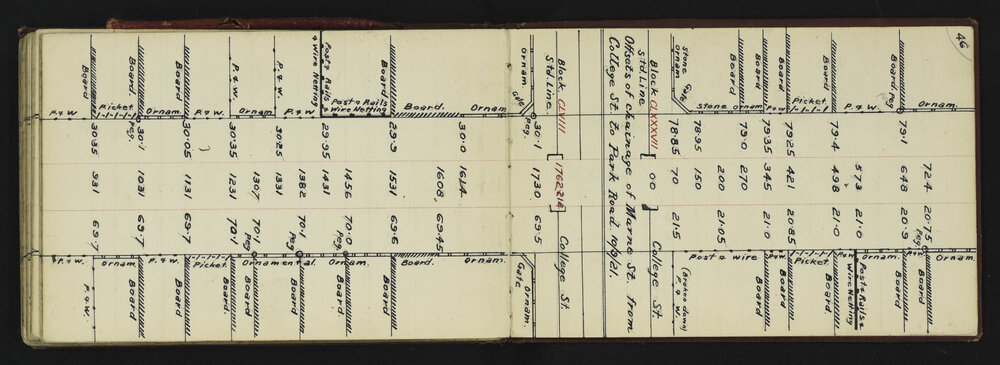 46
Ornam.
724 20.75 Ornam.
Peg
Board Peg 79.1 648 20.9 Board
P. & W. 573 21.0 Ornam.
Post & Rails &
Wire Netting
Board 79.4 498 21.0 P&W Board
Picket 79.25 421 20.85 Picket
Board 79.35 345 21.0 Board
P&W P&W
Board 79.0 270 21.0
Stone Ornam 200 21.05 Post & wire
78.95 150
Stone Ornam. Gate 78.85 70 21.5 (broken down)
P. & W.
Block CLXXXVII [00] College St.
Std. Line
Offsets of Chainage of Marne St. from
College St. to Park Road. 19/9/21.
Block CLVIII [1762.214] College St.
Std. Line
Gate Peg 30.1 1730 69.5
Ornam. Gate Ornam.
Ornam. 30.0 1614 Ornam.
Board. 1608 69.45 Board
Board 29.9 1531 69.6 Board
Post & Rails
& Wire Netting 1456 70.0 Ornam.
Peg
Post & Rails
& Wire Netting 29.95 1431
P. & W. 1382 70.1 Board
Peg
P. & W. 30.25 1331 Ornamental.
Ornam. 1307 70.1 Board
Peg
P. & W. 30.35 1231 70.1 Board
P. & W. Picket
Board 30.05 1131 69.7 Board
Ornam. P. & W.
Board 30.1 1031 69.7 Board
Peg.
Picket Ornam.
Board 30.35 931 69.7 P. & W.
P. & W. P. & W.